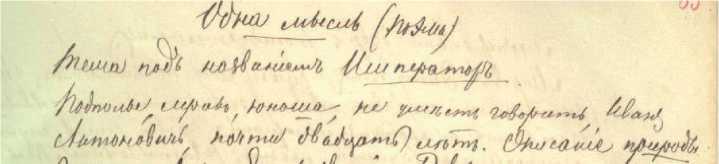 Одна мысль (поэма)
Тема подъ названіемъ Императоръ.
Подполье, мракъ, юноша, не умѣетъ говорить, Иванъ
Антоновичь, почти двадцать лѣтъ. Описаніе природы